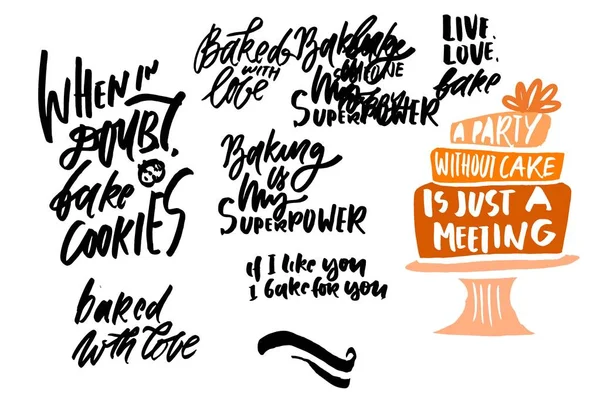 WHEN IN
DOUBT,
bake
COOKIES
baked
with love
Baked
WITH
love
Baking
is
My
SUPERPOWER
if I like you
I bake for you
My
SUPERPOWER
LIVE.
LOVE.
bake
A PARTY
WITHOUT CAKE
IS JUST A
MEETING